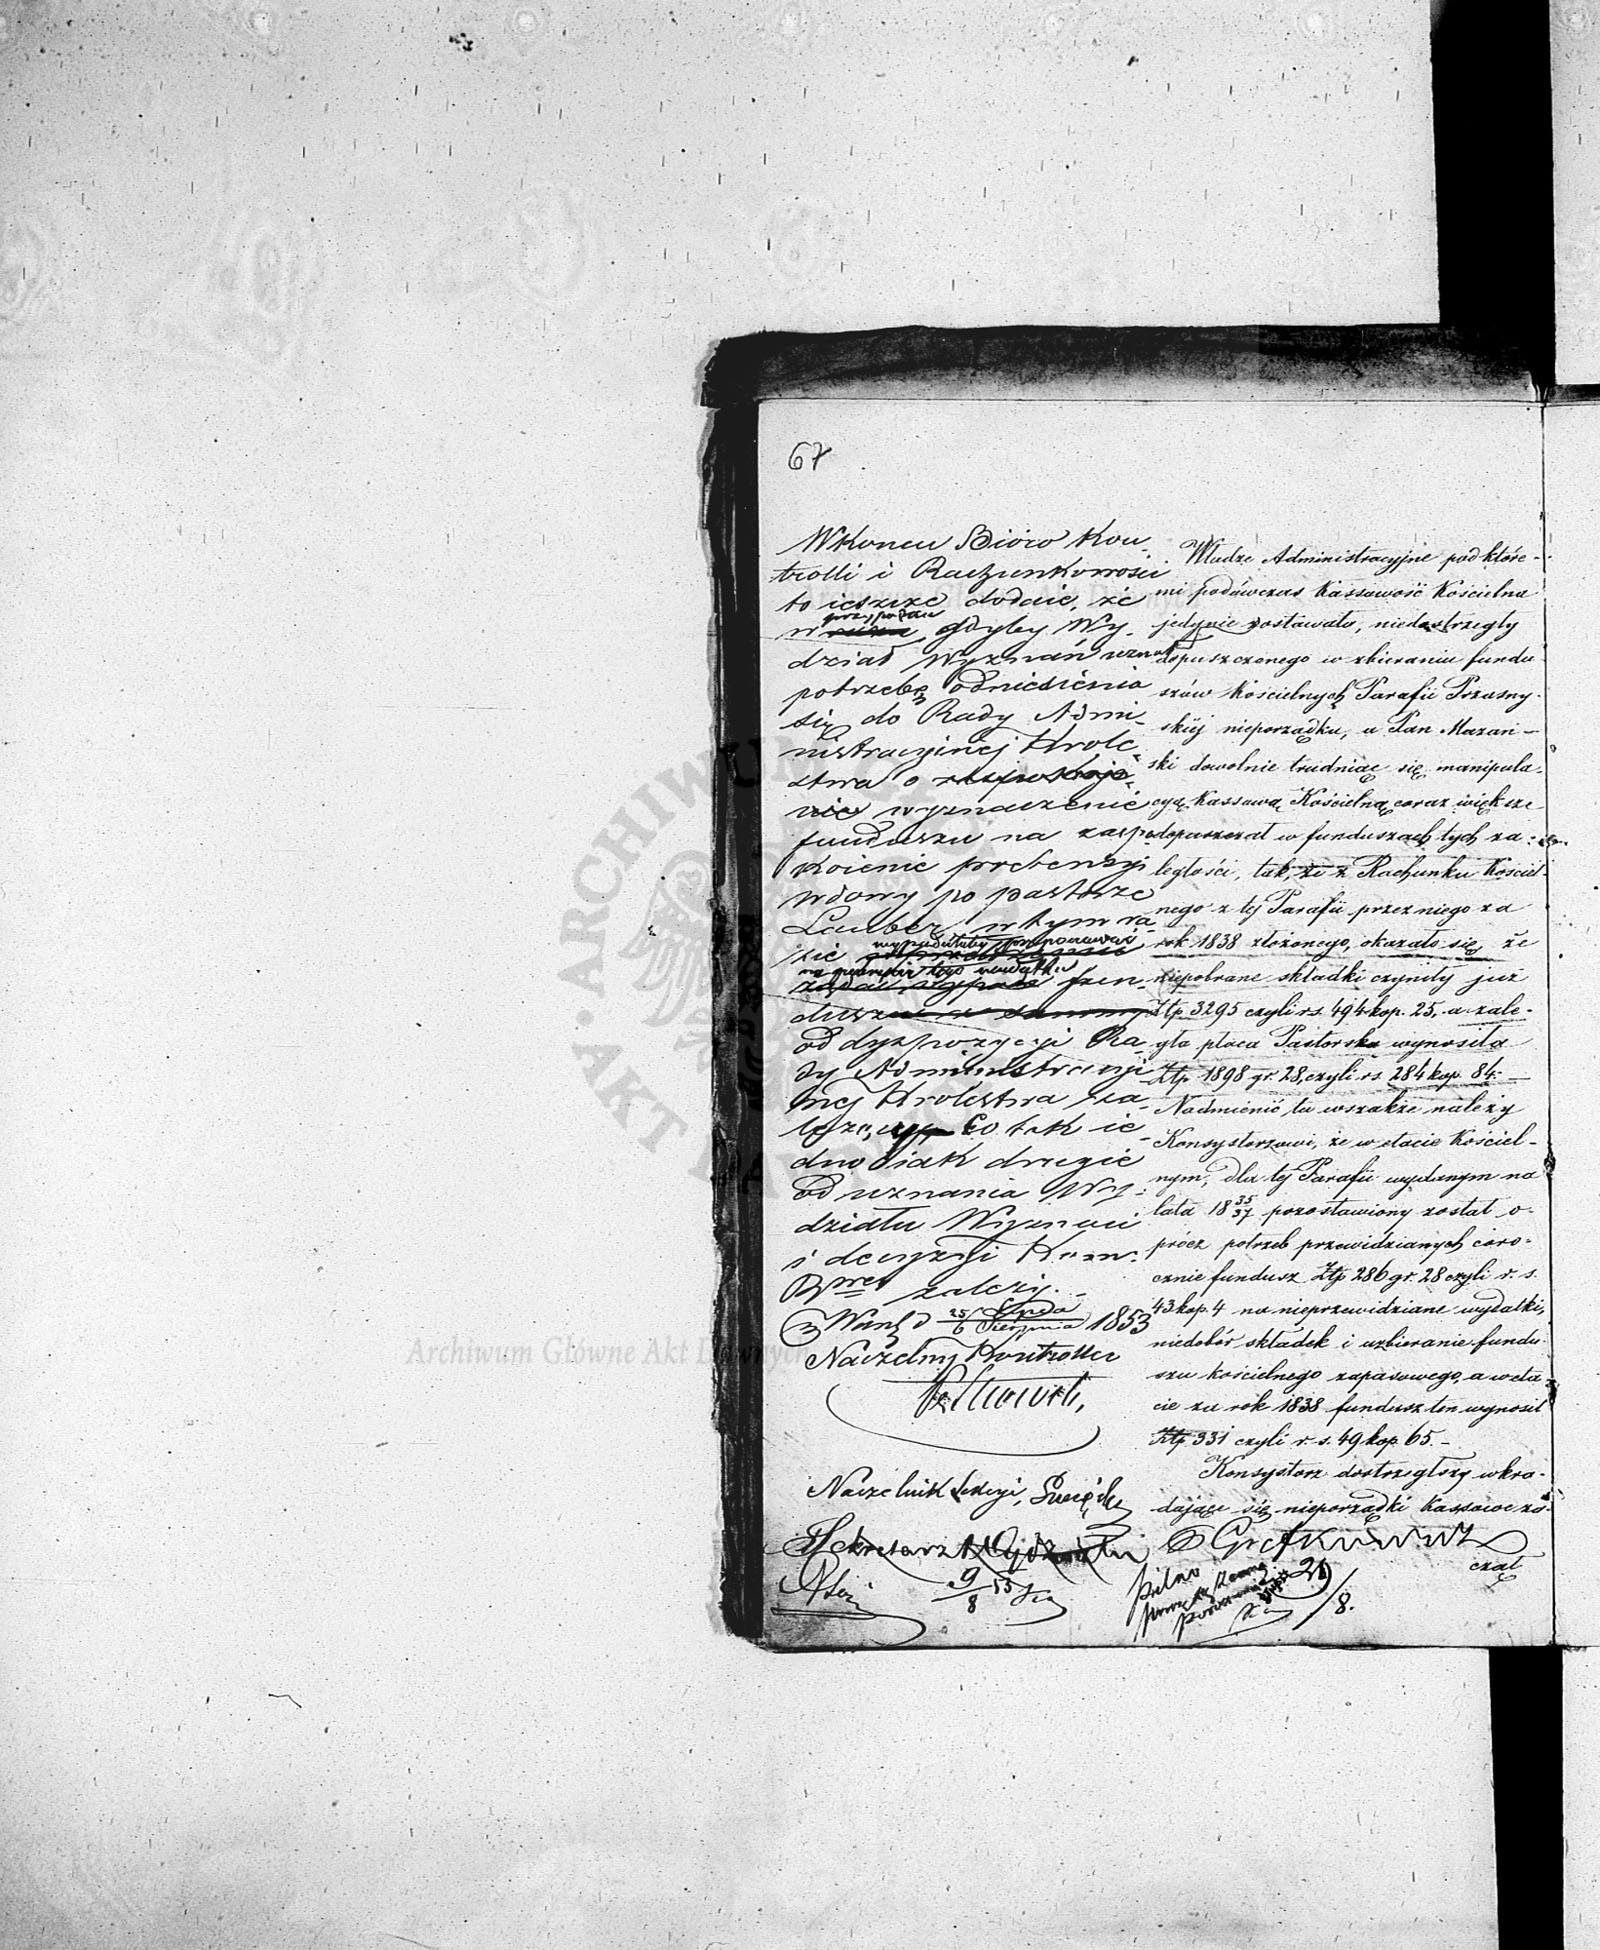 67
W Koncu Biòro Kon-
trolli i Rachunkowosci
to ieszcze dodaie, że
przypadku
w razie, gdyby Wy-
dział Wyznań uznał
potrzebę odniesienia
się do Rady Admi-
nistracyinej Krole-
stwa o zaspokoje-
nie wyznaczenie
funduszu na zaspo-
koienie pretensyi
wdowy po pastorze
Lauber, w tym ra-
zie
wypadałoby proponować
na pokrycie tego wydatku
żądać fun-
duszu
od dyspozycji Ra-
dy Administracyi-
nej Krolestwa za-
leżący. Co tak ie-
dno iak drugie
od uznania Wy-
działu Wyznań
i decyzyi Kom.
Rząd zależy.
W Warsz d 25/6 Lipca/Sierpnia 1853
Naczelny Kontroller
Naczelnik Sekcyi,
Sekretarz
9/8 53
Władze Administracyjne pod które-
mi podówczas Kassowość Kościelna
jedynie zostawała, niedostrzegły
dopuszczonego w zbieraniu fundu-
szów Kościelnych Parafii Przasny-
skiéj nieporządku, a Pan Mazań-
ski dowolnie trudniąc się manipula-
cyą Kassową Kościelną coraz większe
dopuszczał w funduszach tych za-
ległości, tak, że z Rachunku Kościel-
nego z téj Parafii przez niego za
rok 1838 złożonego, okazało się, że
niepobrane składki czyniły już
Złp 3295 czyli rs. 494 kop. 25, a zale-
gła płaca Pastorska wynosiła
Złp 1898 gr. 28, czyli rs. 284 kop. 84.-
Nadmienić tu wszakże należy
Konsystorzowi, że w etacie Kościel-
nym, dla téj Parafii wydanym na
lata 1835/37 pozostawiony został o-
prócz potrzeb przewidzianych coro-
cznie fundusz Złp 286 gr. 28 czyli r. s.
43 kop. 4 na nieprzewidziane wydatki,
niedobór składek i uzbieranie fundu-
szu kościelnego zapasowego, a w eta-
cie za rok 1838 fundusz ten wynosił
Złp 331 czyli r. s. 49 kop. 65.-
Konsystorz dostrzegłszy wkra-
dające się nieporządki Kassowe za-
czął
pilno
21/8.
Archiwum Główne Akt Dawnych